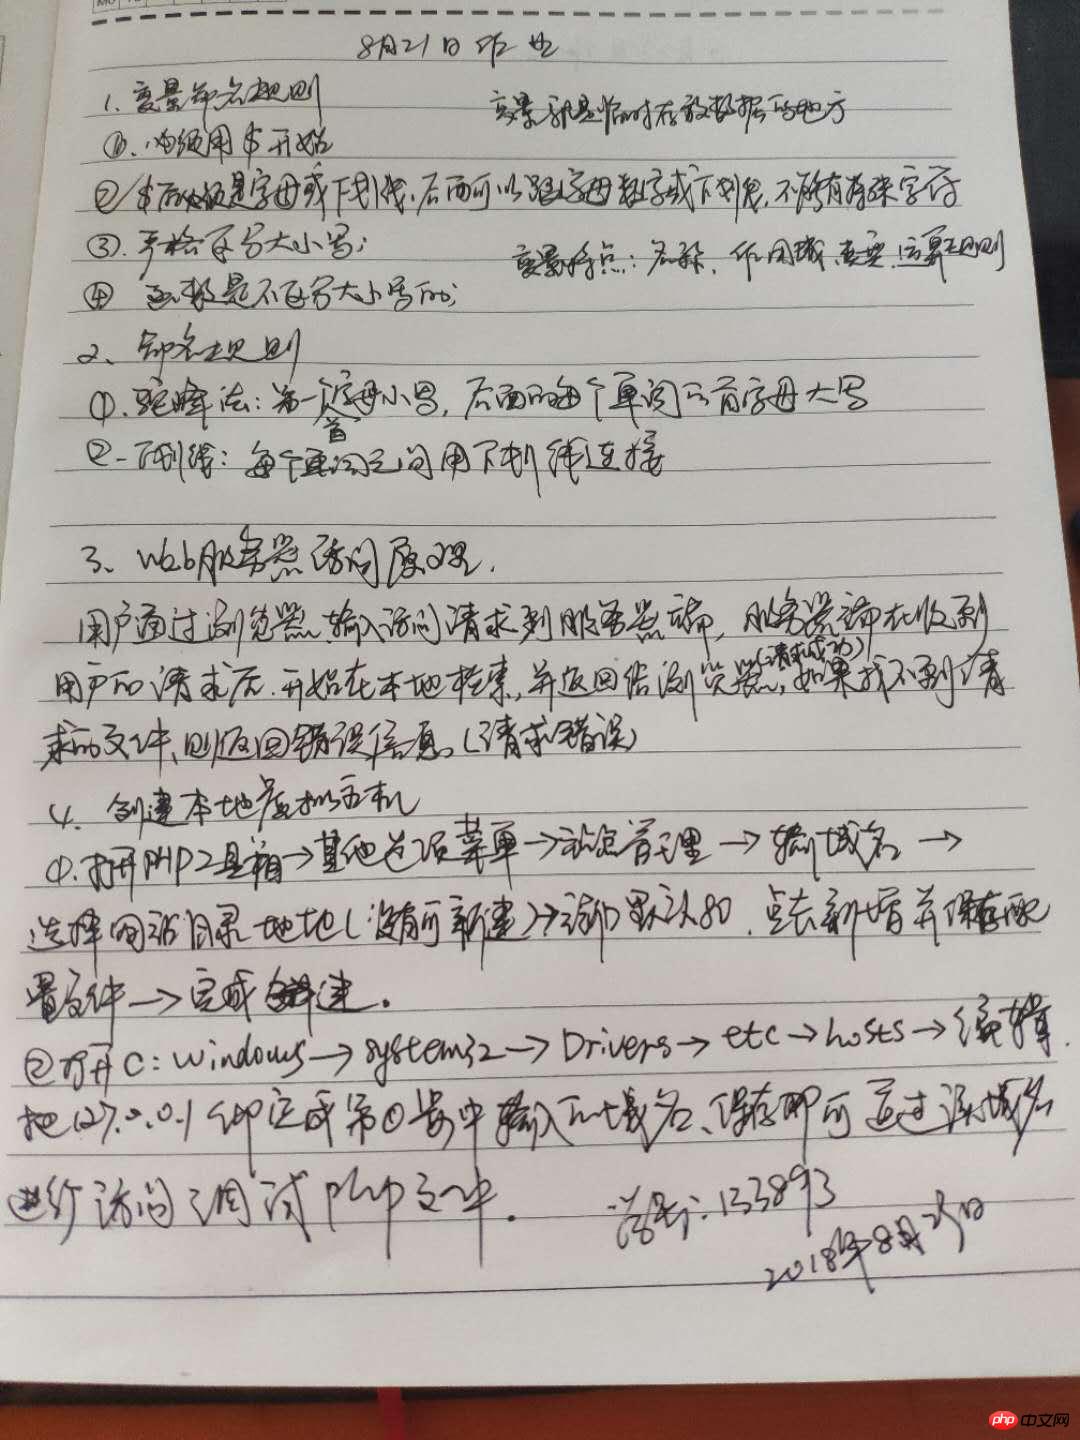 8月21日作业
1、变量命名规则
变量就是临时存放数据的地方
①、必须用$开始
②$后必须是字母或下划线,后面可以跟字母数字或下划线,不能有特殊字符
③、严格区分大小写;
变量特点:名称、作用域、类型、运算规则
④ 函数是不区分大小写的;
2、命名规则
①、驼峰法:第一个字母小写,后面的每个单词的首字母大写
首
②、下划线:每个单词之间用下划线连接
3、Web服务器访问原理.
用户通过浏览器输入访问请求到服务器端,服务器端在收到
用户的请求后,开始在本地检索,并返回给浏览器(请求成功),如果找不到请
求的文件、则返回错误信息。(请求错误)
4、创建本地虚拟主机
①、打开PHP工具箱→其他选项菜单→站点管理→输入域名→
选择网站目录地址(没有可新建)→端口默认80、点击新增并保存配
置文件→完成创建.
②打开C:windows→system32→Drivers→etc→hosts→编辑.
把127.0.0.1绑定成第①步中输入的域名、保存即可通过该域名
进行访问调试PHP文件.
学号:133893
2018年8月
php 中文网